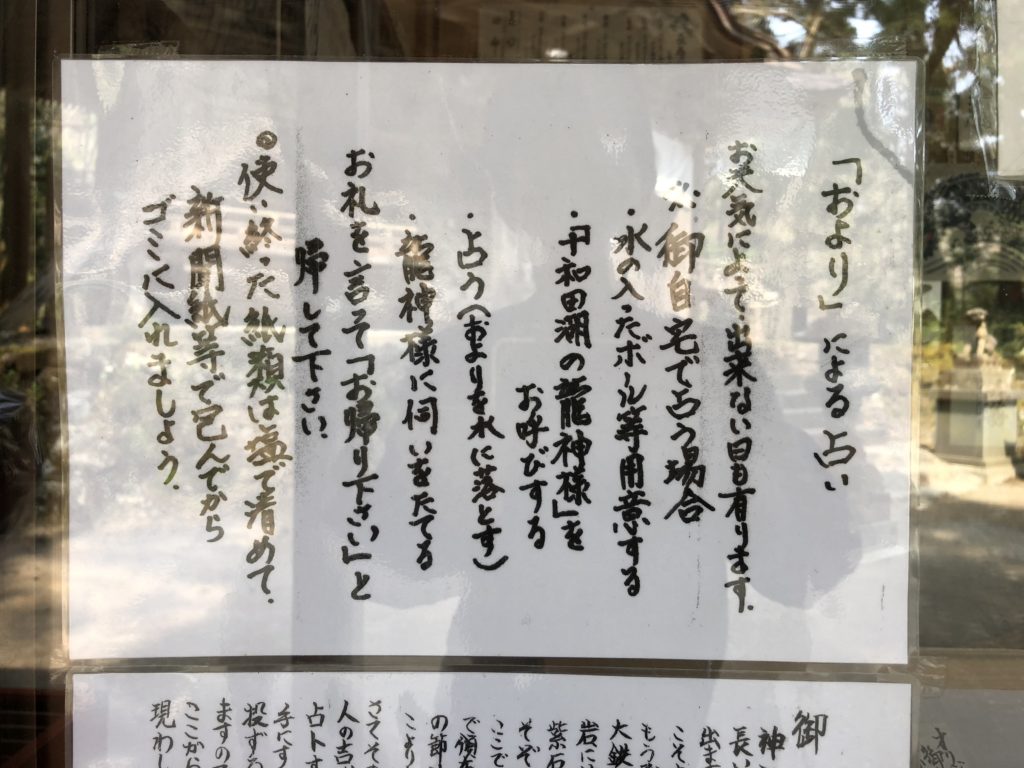 「およリ」による占い
お天気によって出来ない日も有ります.
※御自宅で占う場合
・水の入ったボール等用意する
・「十和田湖の龍神様」を
お呼びする
・占う(およりを水に落とす)
・龍神様に伺いをたてる
お礼を言って「お帰り下さい」と
帰して下さい.
◎使い終った紙類は塩で清めて.
新聞紙等で包んでから
ゴミに入れましょう.
御
神
長い
出ま
こそ
もう
大鉄
岩には
紫石
そぞ
ここで
で傾
の節
こより
さてそ
人の吉
占トす
手にす
投ずる
ますの
ここから
現わし